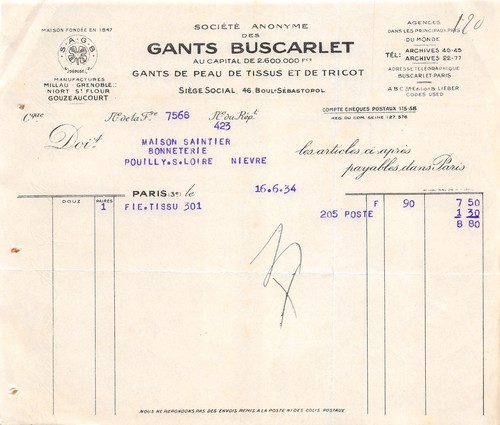 MAISON FONDÉE EN 1847
S.A.G.B
DÉPOSÉE
MANUFACTURES
MILLAU GRENOBLE
NIORT ST FLOUR
GOUZEAUCOURT
SOCIÉTÉ ANONYME
DES
GANTS BUSCARLET
AU CAPITAL DE 2.600.000 FRS
GANTS DE PEAU DE TISSUS ET DE TRICOT
SIÈGE SOCIAL, 46, BOULD SÉBASTOPOL
AGENCES
DANS LES PRINCIPAUX PAYS
DU MONDE
TÉL: ARCHIVES 40-45
ARCHIVES 22-77
ADRESSE TÉLÉGRAPHIQUE
BUSCARLET-PARIS
A.B.C. 5th Edition & LIEBER
CODES USED
120
COMPTE CHÈQUES POSTAUX 115-58
REG. DU COM. SEINE 187.576
Cque
No de la Fre 7568 No du Rept
423
Doit
MAISON SAINTIER
BONNETERIE
POUILLY.S.LOIRE NIEVRE
les articles ci après
payables dans Paris
PARIS (3e) le 16.6.34
DOUZ PAIRES
1 FIE.TISSU 301 F 90 7 50
205 POSTE 1 30
8 80
NOUS NE RÉPONDONS PAS DES ENVOIS REMIS A LA POSTE NI DES COLIS POSTAUX